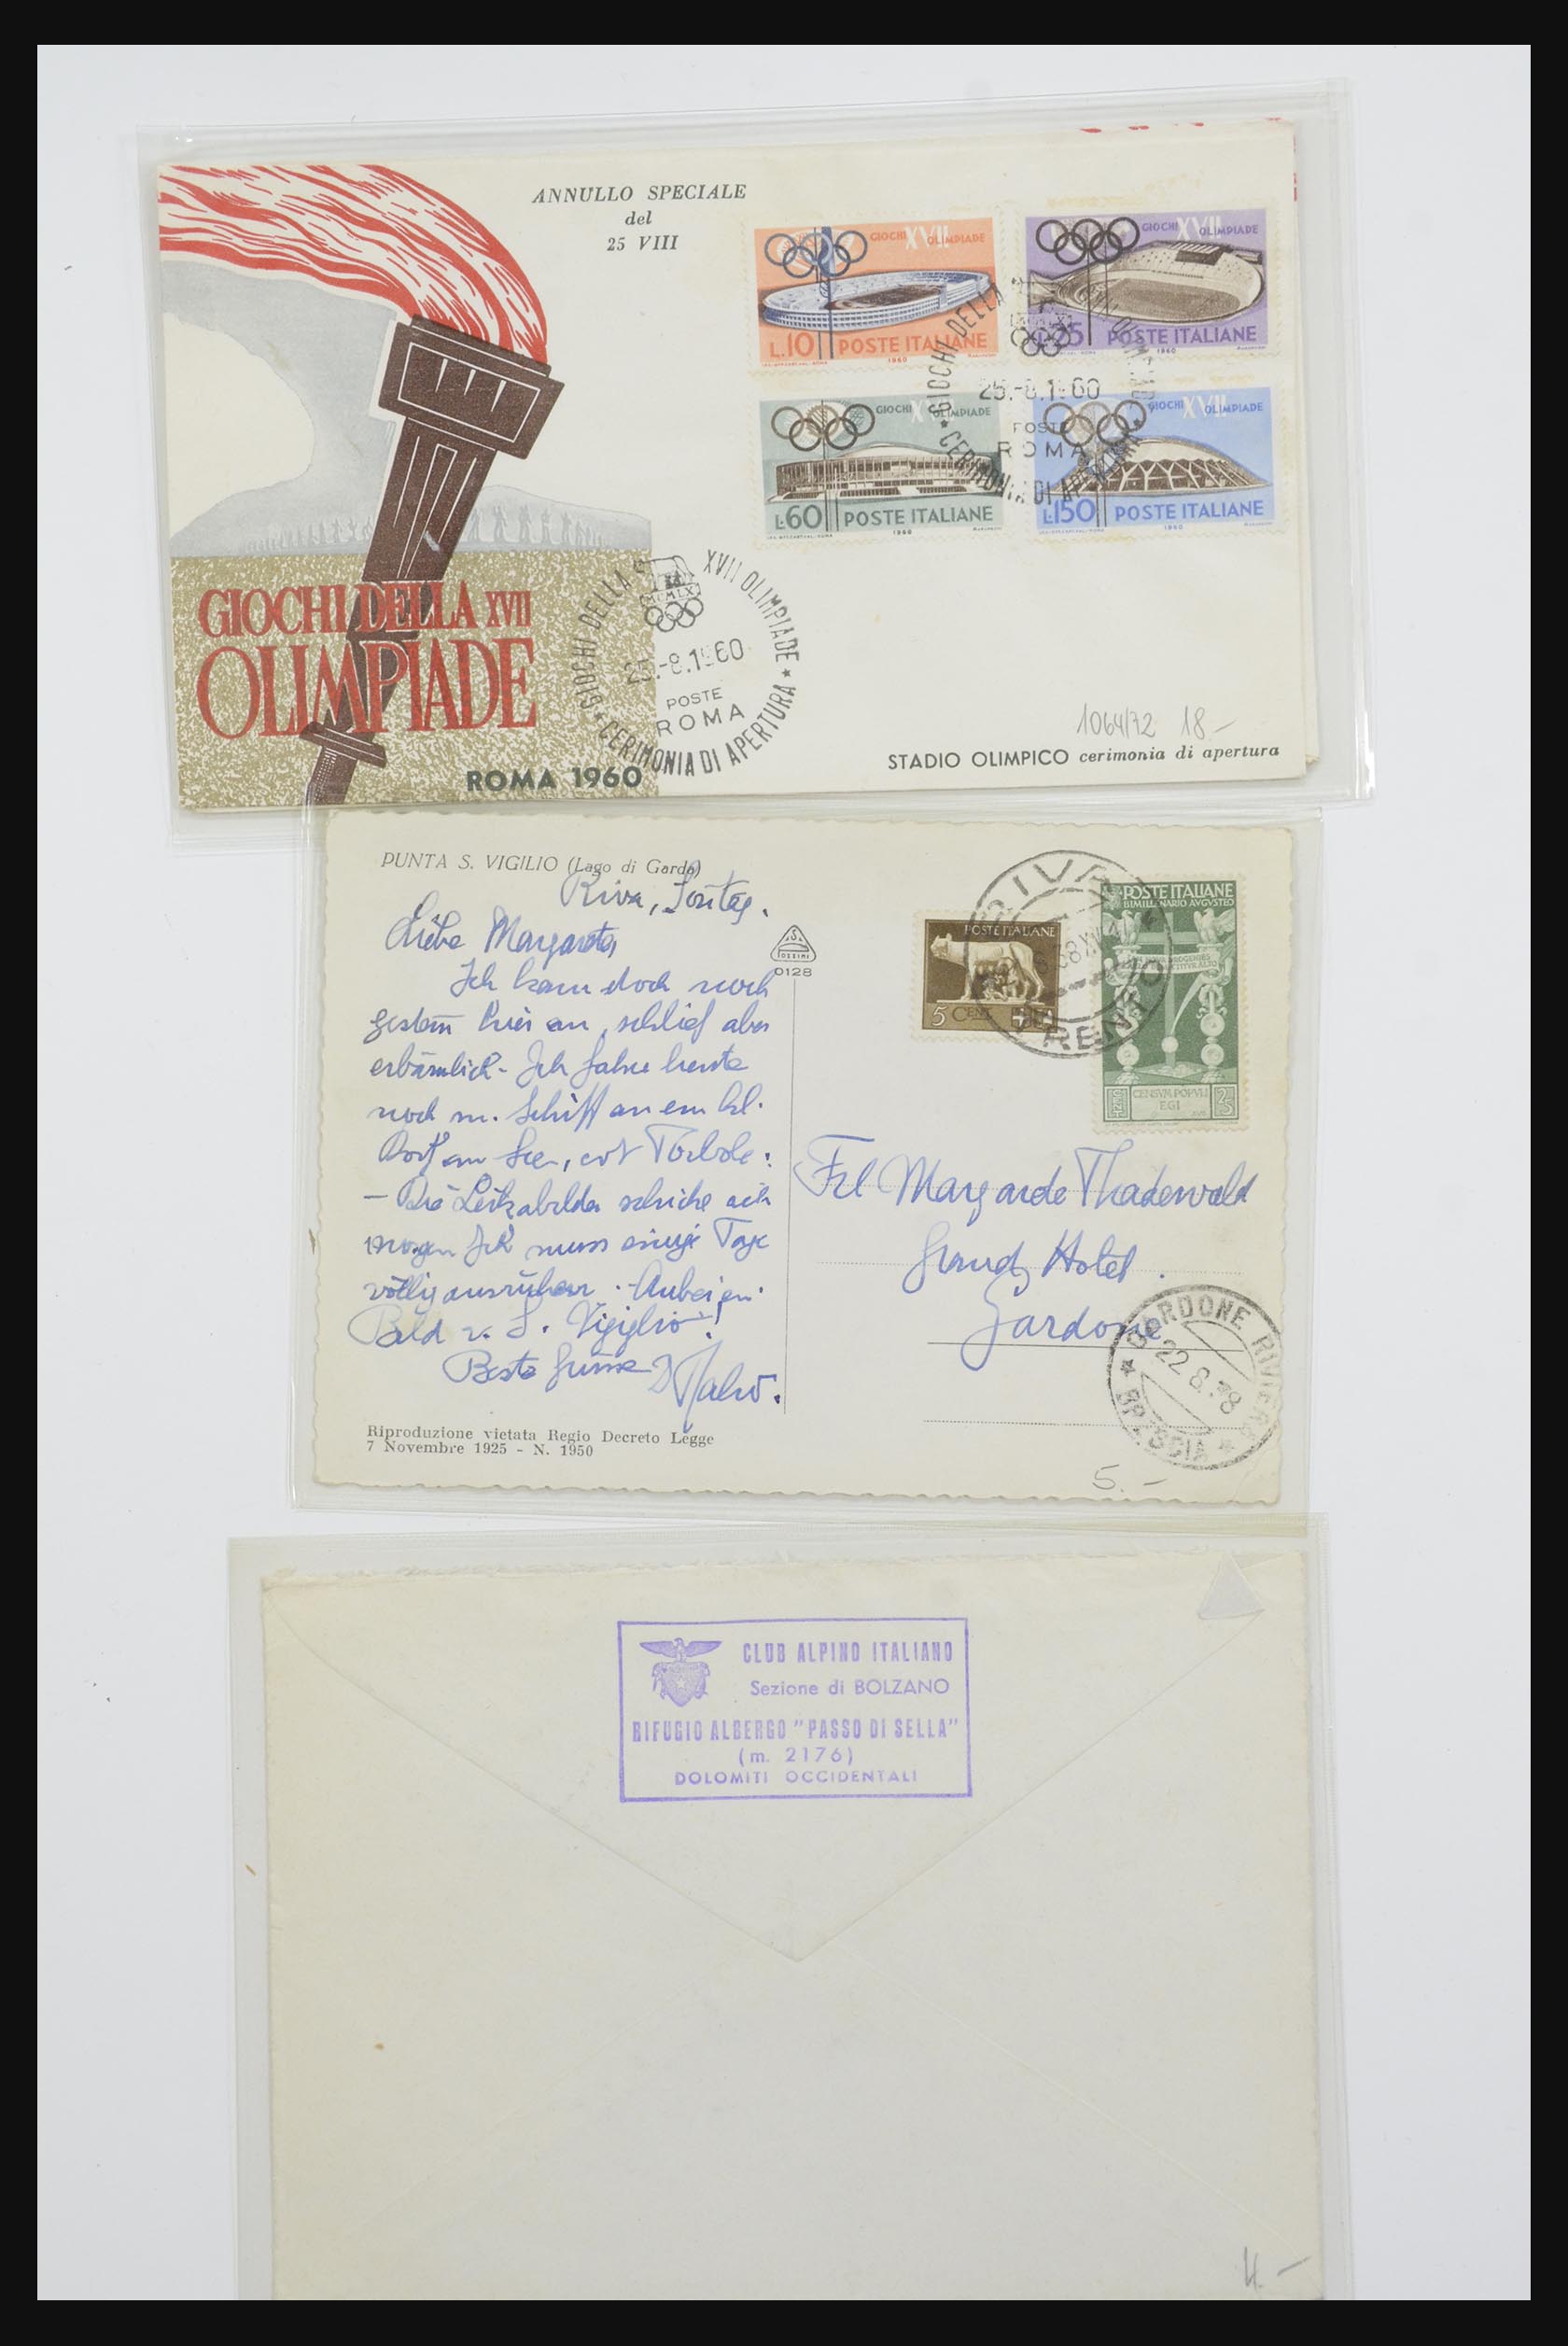 ANNULLO SPECIALE
del
25 VIII
GIOCHI XVII OLIMPIADE
L.10 POSTE ITALIANE
1960
GIOCHI XVII OLIMPIADE
POSTE ITALIANE
1960
GIOCHI XVII OLIMPIADE
L.60 POSTE ITALIANE
1960
GIOCHI XVII OLIMPIADE
L.150 POSTE ITALIANE
1960
GIOCHI DELLA
25.-8.1960
POSTE
ROMA
CERIMONIA DI APERTURA
GIOCHI DELLA XVII
OLIMPIADE
ROMA 1960
GIOCHI DELLA XVII OLIMPIADE
MCMLX
25.-8.1960
POSTE
ROMA
* CERIMONIA DI APERTURA *
1064/72 18.-
STADIO OLIMPICO cerimonia di apertura
PUNTA S. VIGILIO (Lago di Garda)
Riva, Sontag.
Liebe Margarete
Ich kam doch noch
gestern hier an, schlief aber
erbärmlich - Ich fahre heute
noch m. Schiff an ein kl.
Dorf am See, evt Torbole:
- Die Leikabilder schicke ich
morgen Ich muss einige Tage
völlig ausruhen. Anbei ein
Bild v. S. Vigiglio!
Beste Grüsse
Riproduzione vietata Regio Decreto Legge
7 Novembre 1925 - N. 1950
0128
POSTE ITALIANE
5 CENT.
POSTE ITALIANE
BIMILLENARIO AUGUSTEO
CENSVM POPVLI
EGI
25
RIVA
TRENTO
Frl Margarete Thadewald
Grand Hotel.
Gardone
GARDONE RIVIERA
22.8.38
* BRESCIA *
5.-
CLUB ALPINO ITALIANO
Sezione di BOLZANO
RIFUGIO ALBERGO "PASSO DI SELLA"
(m. 2176)
DOLOMITI OCCIDENTALI
4.-